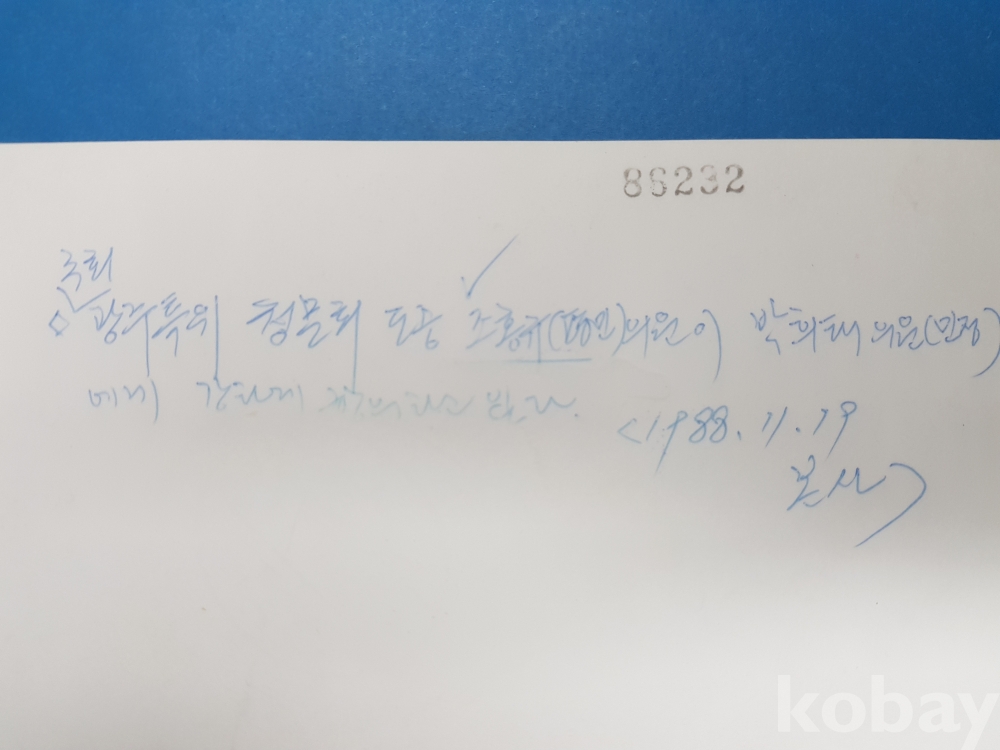 86232
국회
◇ 광주특위 청문회 도중 조홍규(평민)의원이 박희태의원(민정)
에게 강력하게 항의하고 있다.
<1988. 11. 19
본사>
kobay